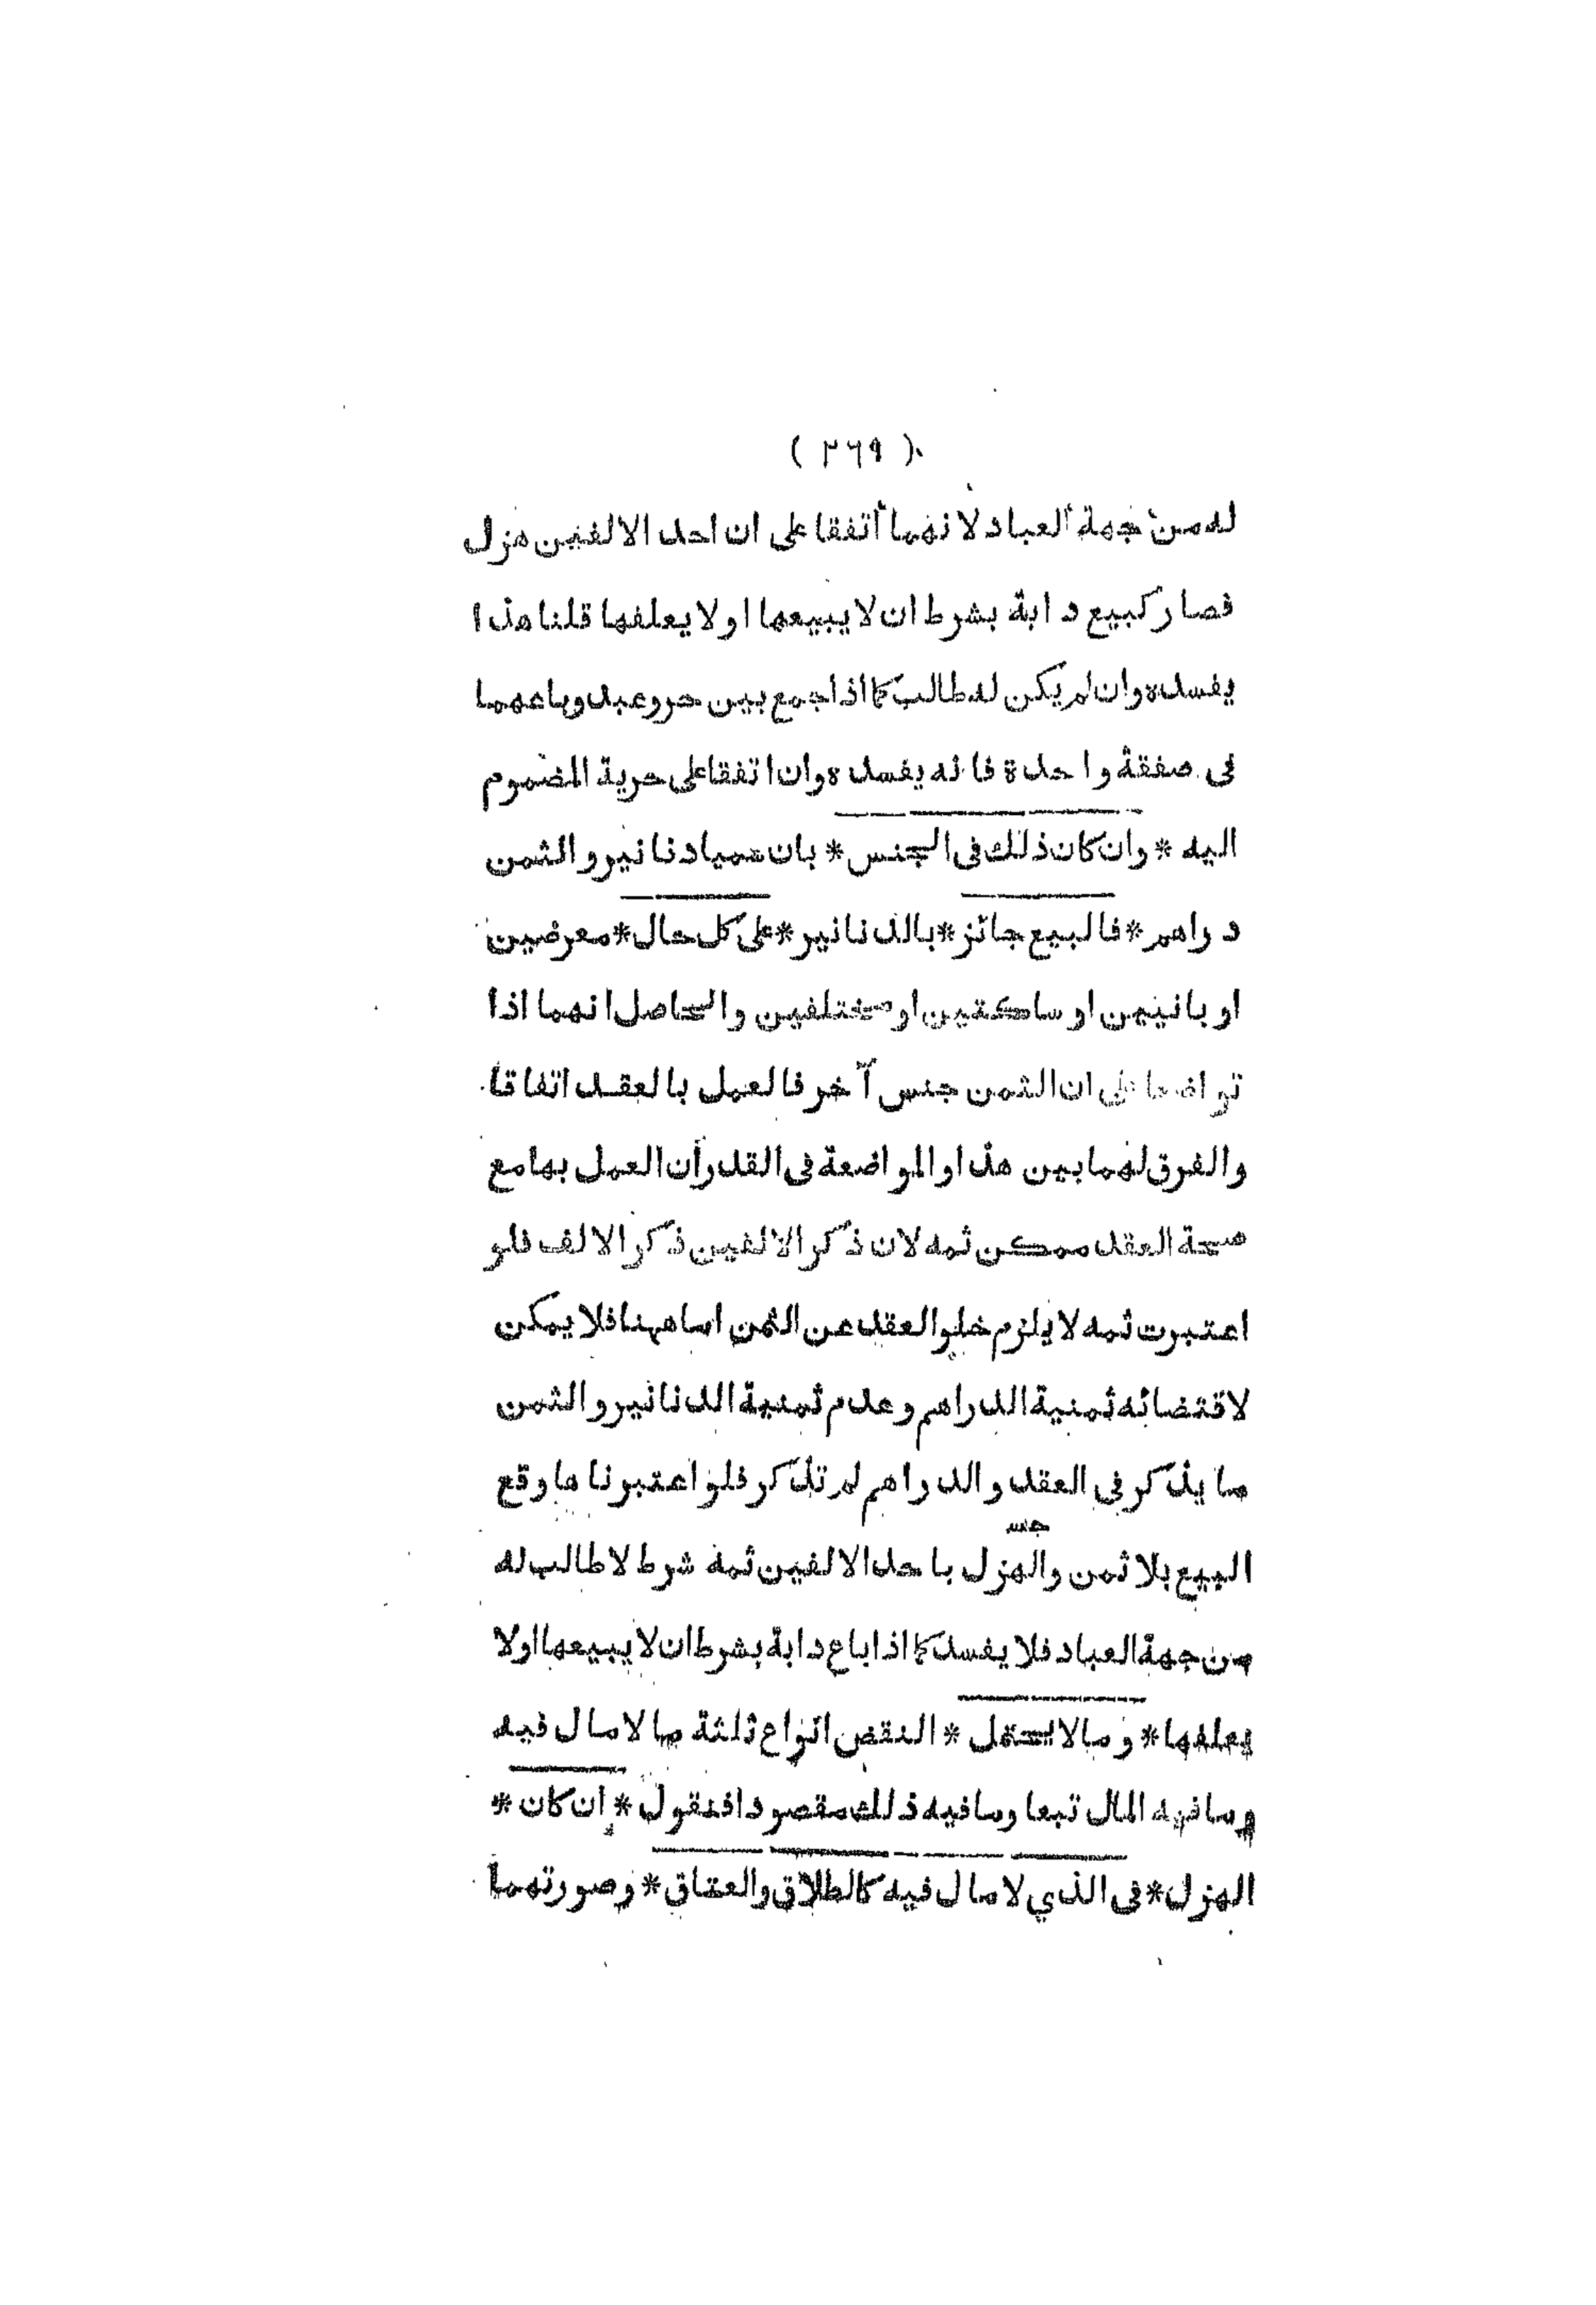 ( ٣٦٩ )
له من جهة العباد لانهما اتفقا على ان احد الالفين هزل
فصار كبيع دابة بشرط ان لا يبيعها او لا يعلفها قلنا هذا
يفسده وان لم يكن له طالب كما اذا جمع بين حر وعبد وباعهما
فى صفقة واحدة فانه يفسده وان اتفقا على حرية المضموم
اليه * وان كان ذلك فى الجنس * بان سميا دنانير والثمن
دراهم * فالبيع جائز * بالدنانير * على كل حال * معرضين
او بانيين او ساكتين او مختلفين والحاصل انهما اذا
تواضعا على ان الثمن جنس آخر فالعمل بالعقد اتفاقا
والفرق لهما بين هذا والمواضعة فى القدر أن العمل بها مع
صحة العقد ممكن ثمه لان ذكر الالفين ذكر الالف فلو
اعتبرت ثمه لا يلزم خلو العقد عن الثمن اما ههنا فلا يمكن
لاقتضائه ثمنية الدراهم وعدم ثمنية الدنانير والثمن
ما يذكر فى العقد والدراهم لم تذكر فلو اعتبرناها وقع
البيع بلا ثمن والهزل باحد الالفين ثمه شرط لا طالب له
من جهة العباد فلا يفسد كما اذا باع دابة بشرط ان لا يبيعها اولا
يعلفها * وما لا يحتمل * النقض انواع ثلثة ما لا مال فيه
وما فيه المال تبعا وما فيه ذلك مقصودا فنقول * ان كان *
الهزل * فى الذي لا مال فيه كالطلاق والعتاق * وصورتهما